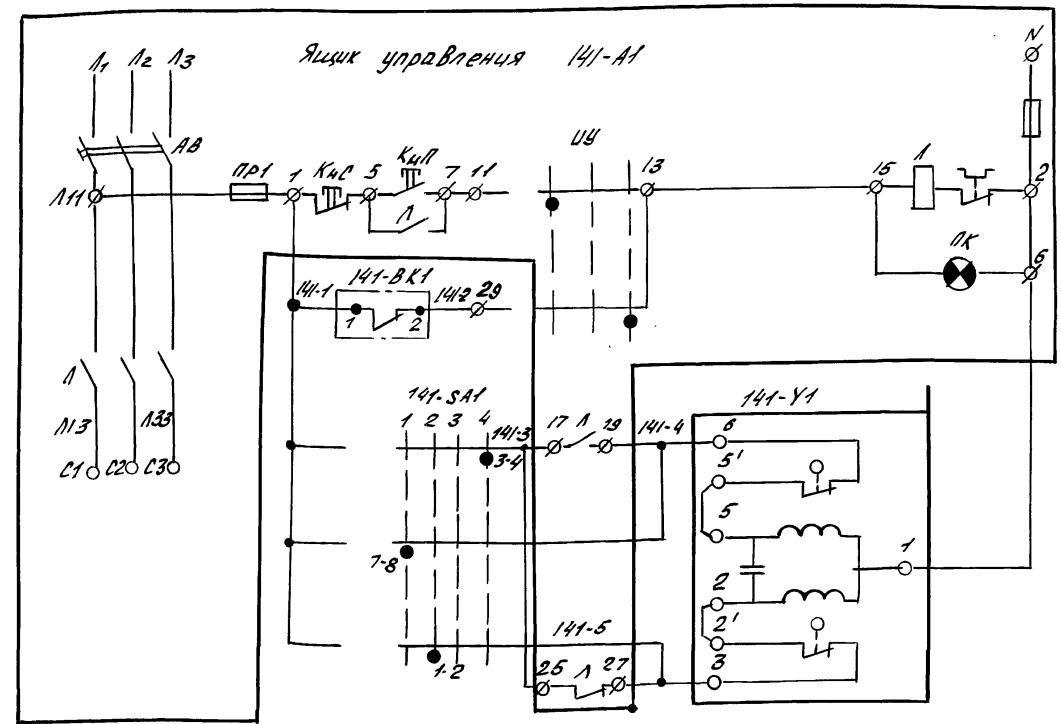 Ящик управления 141-А1
Л1 Л2 Л3
N
АВ
ПР1
1
КнС
5
КнП
7
11
ИУ
13
15
Л
2
Л11
Л
ПК
6
141-1
141-ВК1
1
2
141-2
29
Л
Л13
Л33
С1
С2
С3
141-SA1
1 2 3 4
141-3
3-4
17
Л
19
141-4
7-8
141-5
1-2
25
Л
27
141-Y1
6
5'
5
1
2
2'
3